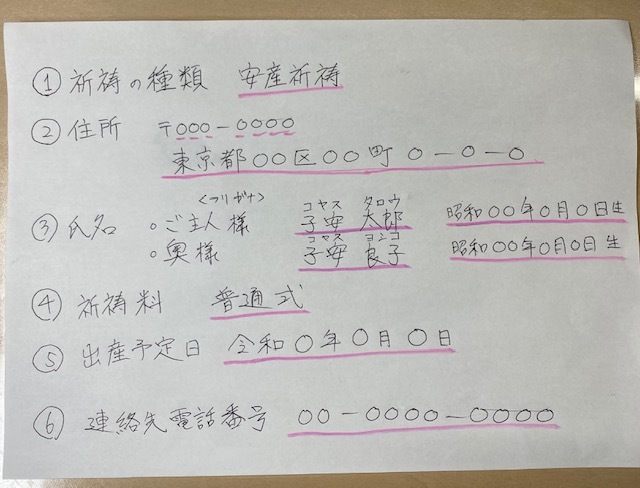 ① 祈祷の種類 安産祈祷
② 住所 〒○○○-○○○○
東京都○○区○○町 ○-○-○
<フリガナ> コヤス タロウ
③ 氏名 ○ご主人様 子安 太郎 昭和○○年○月○日生
コヤス ヨシコ
○奥様 子安 良子 昭和○○年○月○日生
④ 祈祷料 普通式
⑤ 出産予定日 令和○年○月○日
⑥ 連絡先電話番号 ○○-○○○○-○○○○